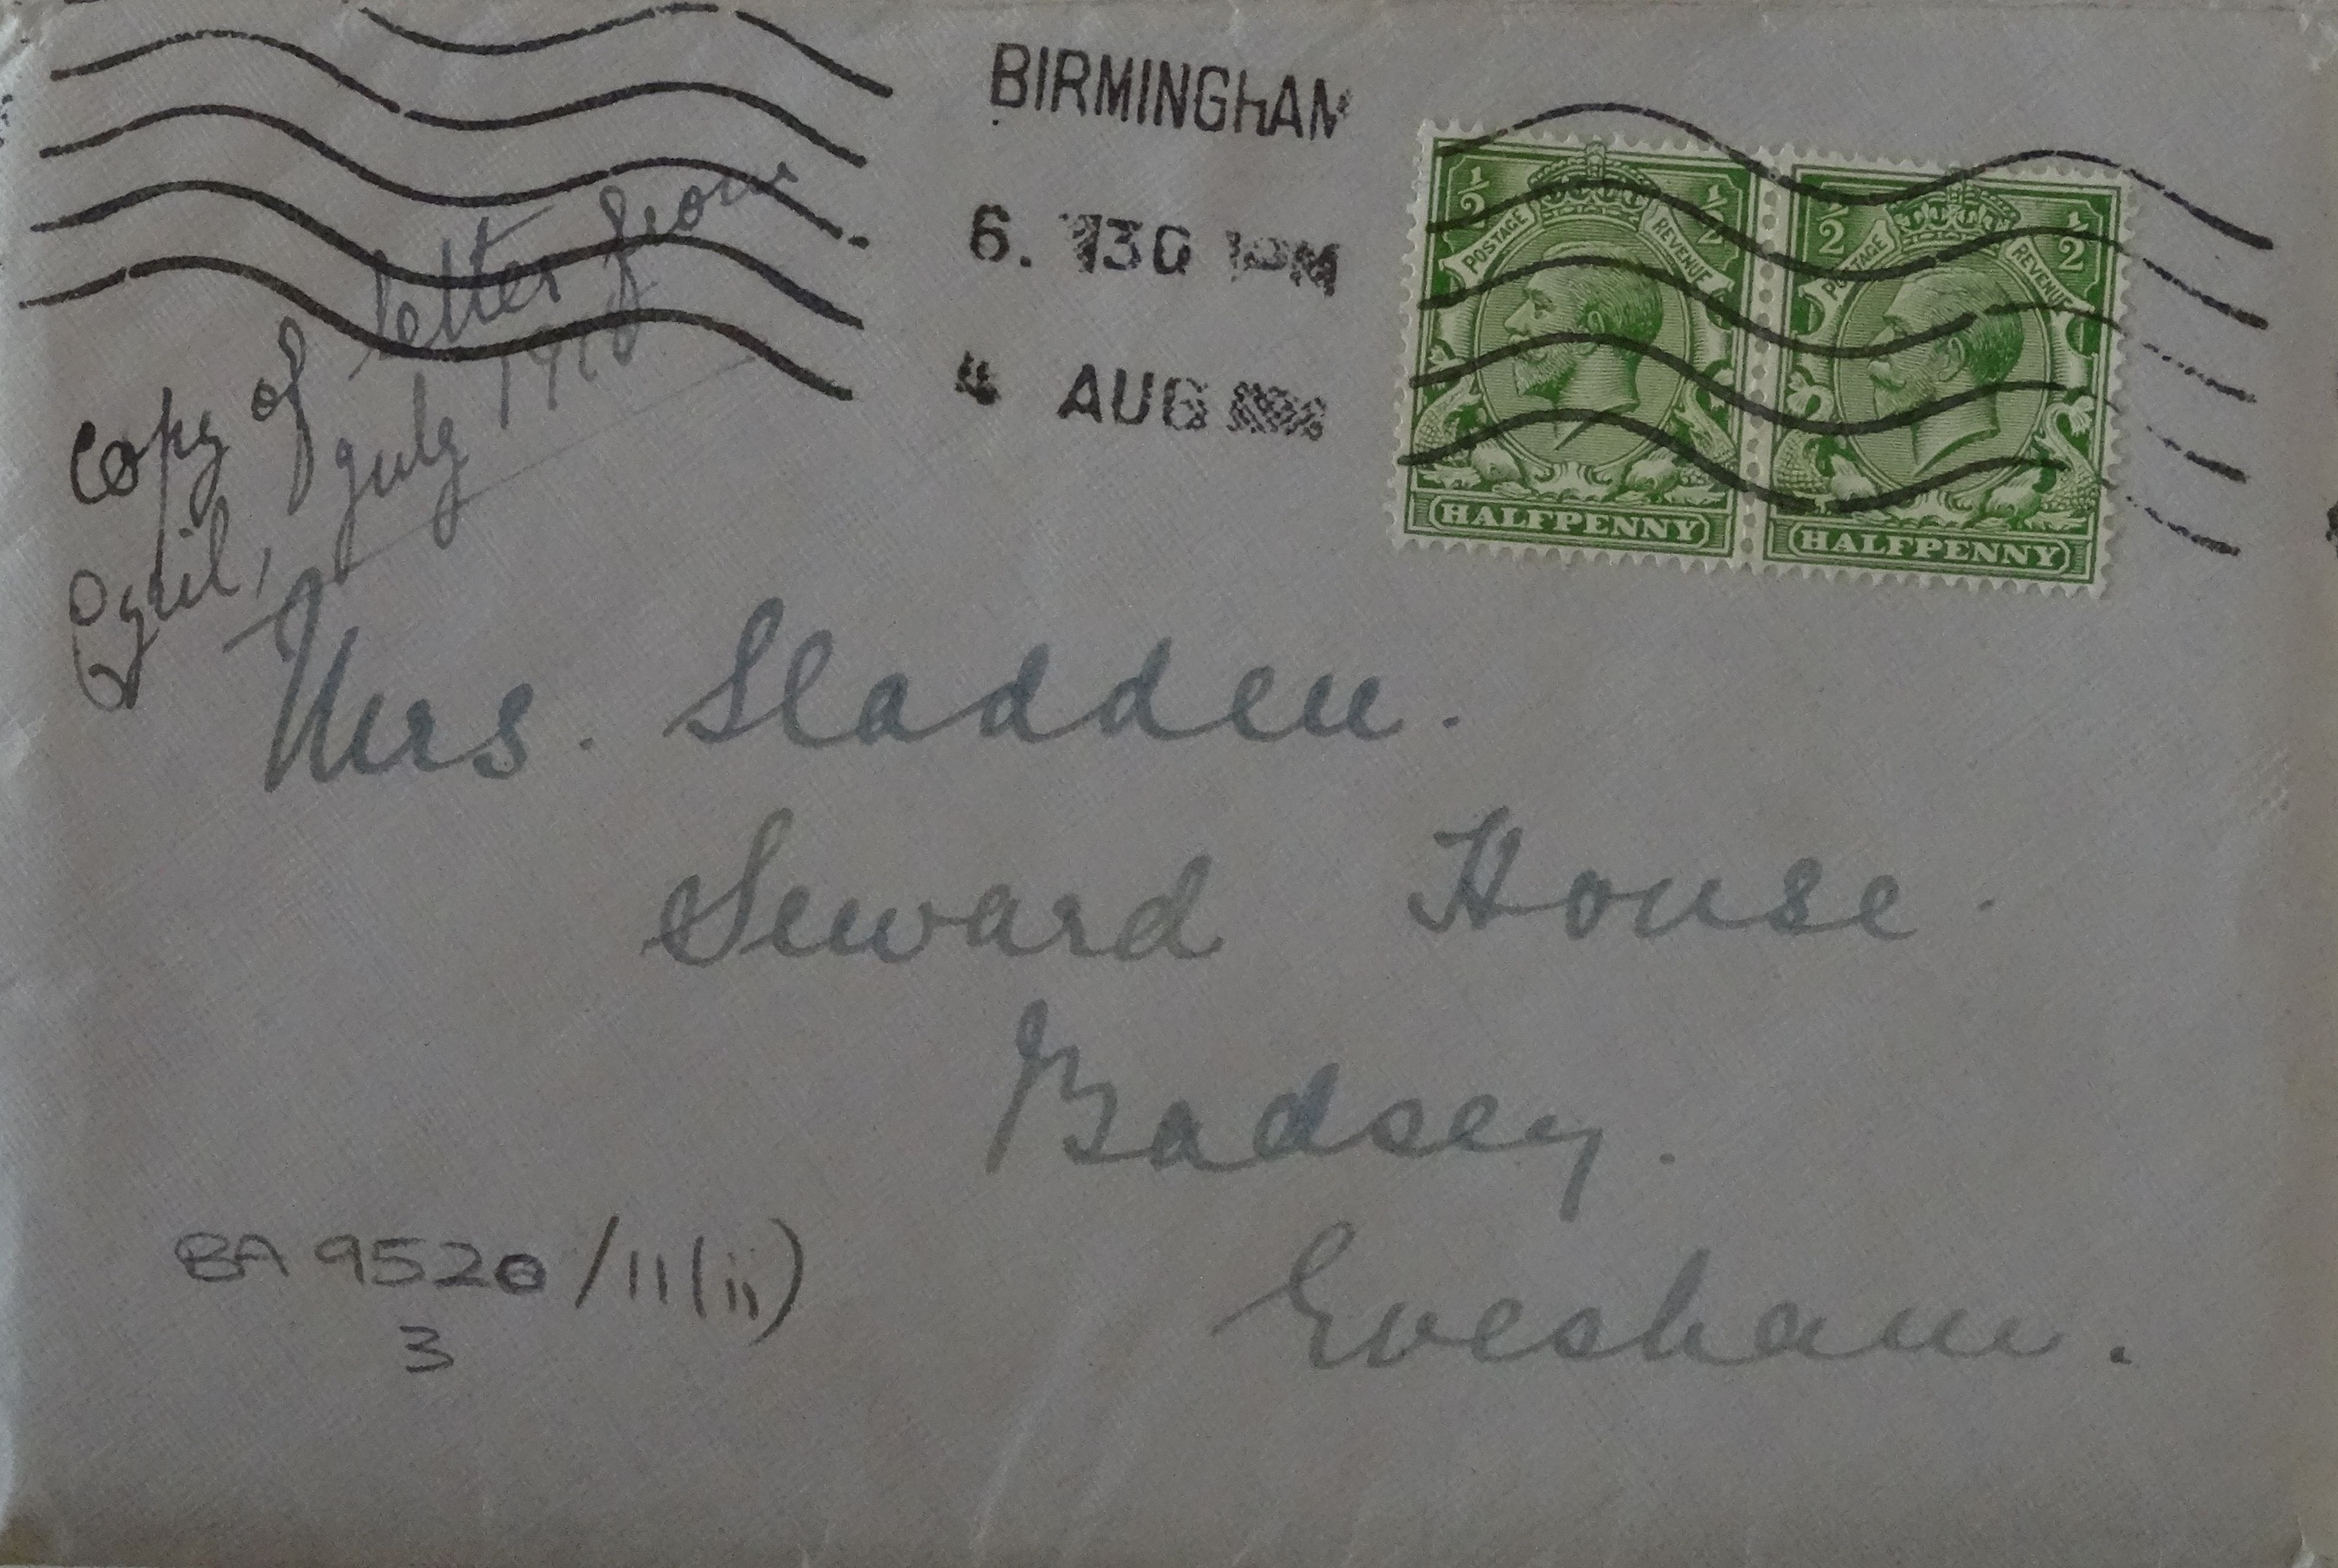 BIRMINGHAM
6. 130 PM
4 AUG
½ ½ ½ ½
POSTAGE REVENUE POSTAGE REVENUE
HALFPENNY HALFPENNY
Copy of letter from
Cyril, July
Mrs. Sladden.
Seward House.
Badsey.
Evesham.
BA 9520/11(ii)
3